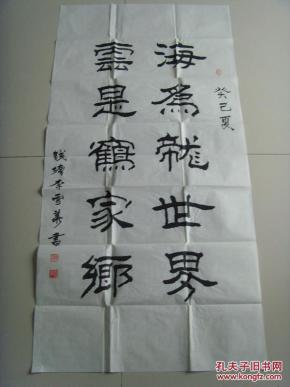 癸巳夏
海為龍世界
雲是鶴家鄉
李雪 書
孔夫子旧书网